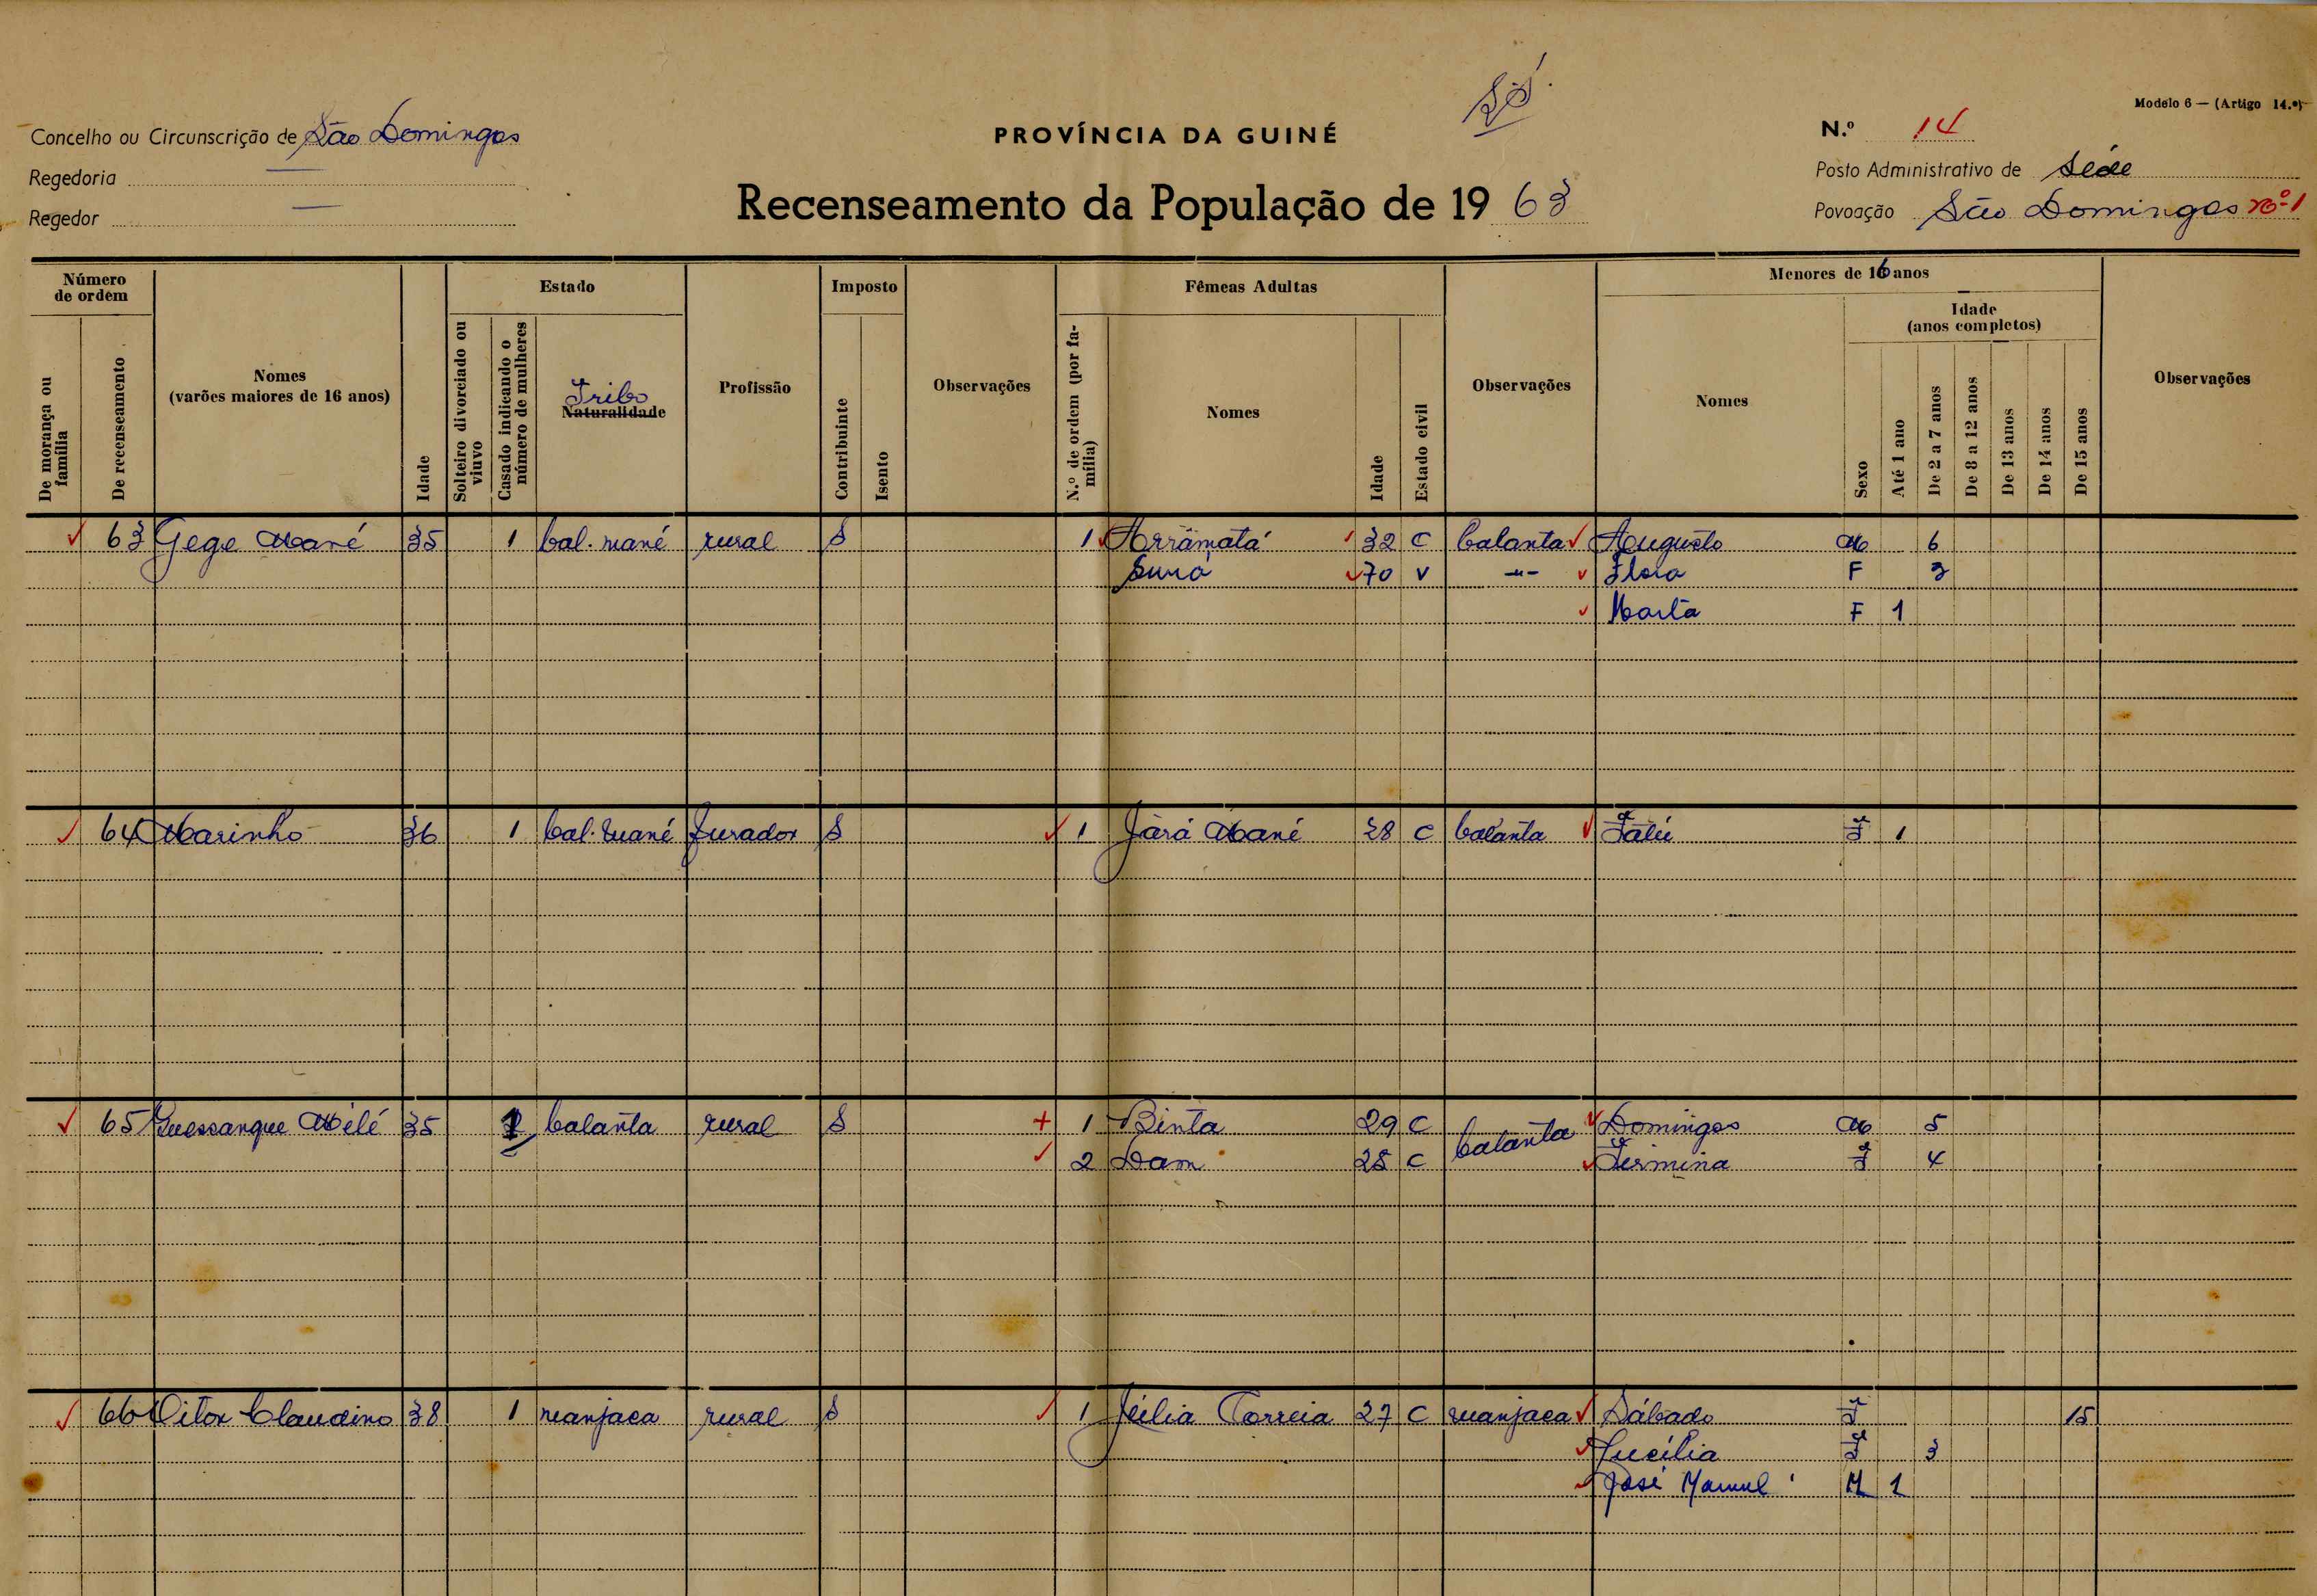 Modelo 6 — (Artigo 14.º)
Concelho ou Circunscrição de São Domingos
PROVÍNCIA DA GUINÉ
N.º 14
Regedoria —
Posto Administrativo de Sede
Regedor —
Recenseamento da População de 1963
Povoação São Domingos nº 1
Número de ordem
De morança ou família
De recenseamento
Nomes
(varões maiores de 16 anos)
Idade
Estado
Solteiro divorciado ou viuvo
Casado indicando o número de mulheres
Tribo
Naturalidade
Profissão
Imposto
Contribuinte
Isento
Observações
Fêmeas Adultas
N.º de ordem (por família)
Nomes
Idade
Estado civil
Observações
Menores de 16 anos
Nomes
Sexo
Idade
(anos completos)
Até 1 ano
De 2 a 7 anos
De 8 a 12 anos
De 13 anos
De 14 anos
De 15 anos
Observações
63 Gege Mané 35 1 bal. mané rural S 1 Arramatá 32 C balanta Augusto M 6
Suná 70 V -"- Flora F 3
Marta F 1
64 Marinho 36 1 bal. mané furador S 1 Jará Mané 28 C balanta Fatú F 1
65 Guessanque Mélé 35 balanta rural S 1 Binta 29 C balanta Domingos M 5
2 Dam 28 C Fermina F 4
66 Vitor Claudino 38 1 manjaca rural S 1 Júlia Correia 27 C manjaca Sábado F 15
Lucília F 3
José Manuel M 1